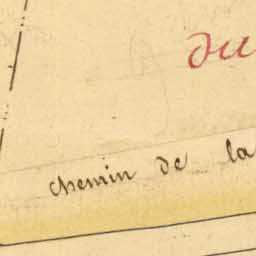 du
chemin de la